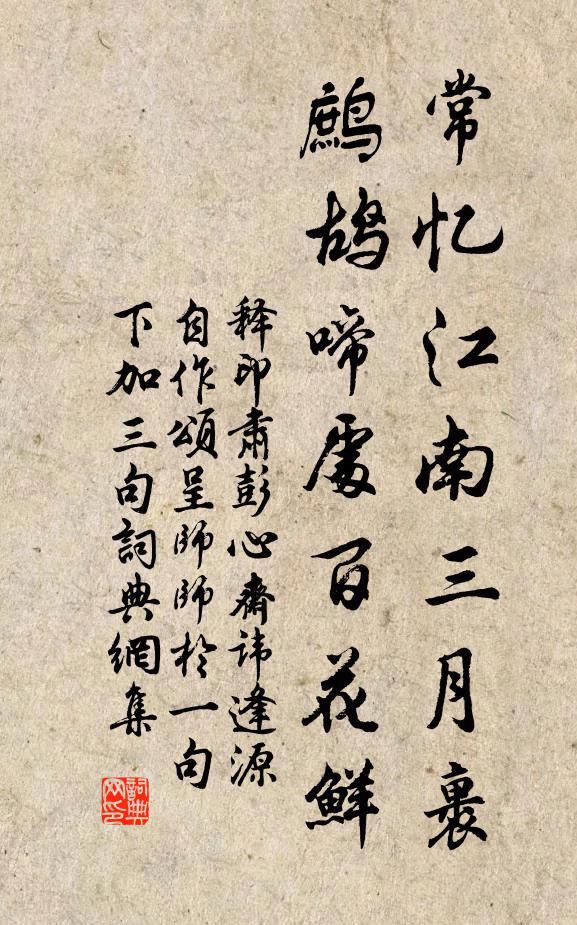 常忆江南三月裏
鷓鴣啼處百花鮮
释印肅彭心齋諱逢源
自作頌呈師師於一句
下加三句詞典網集
詞典网印